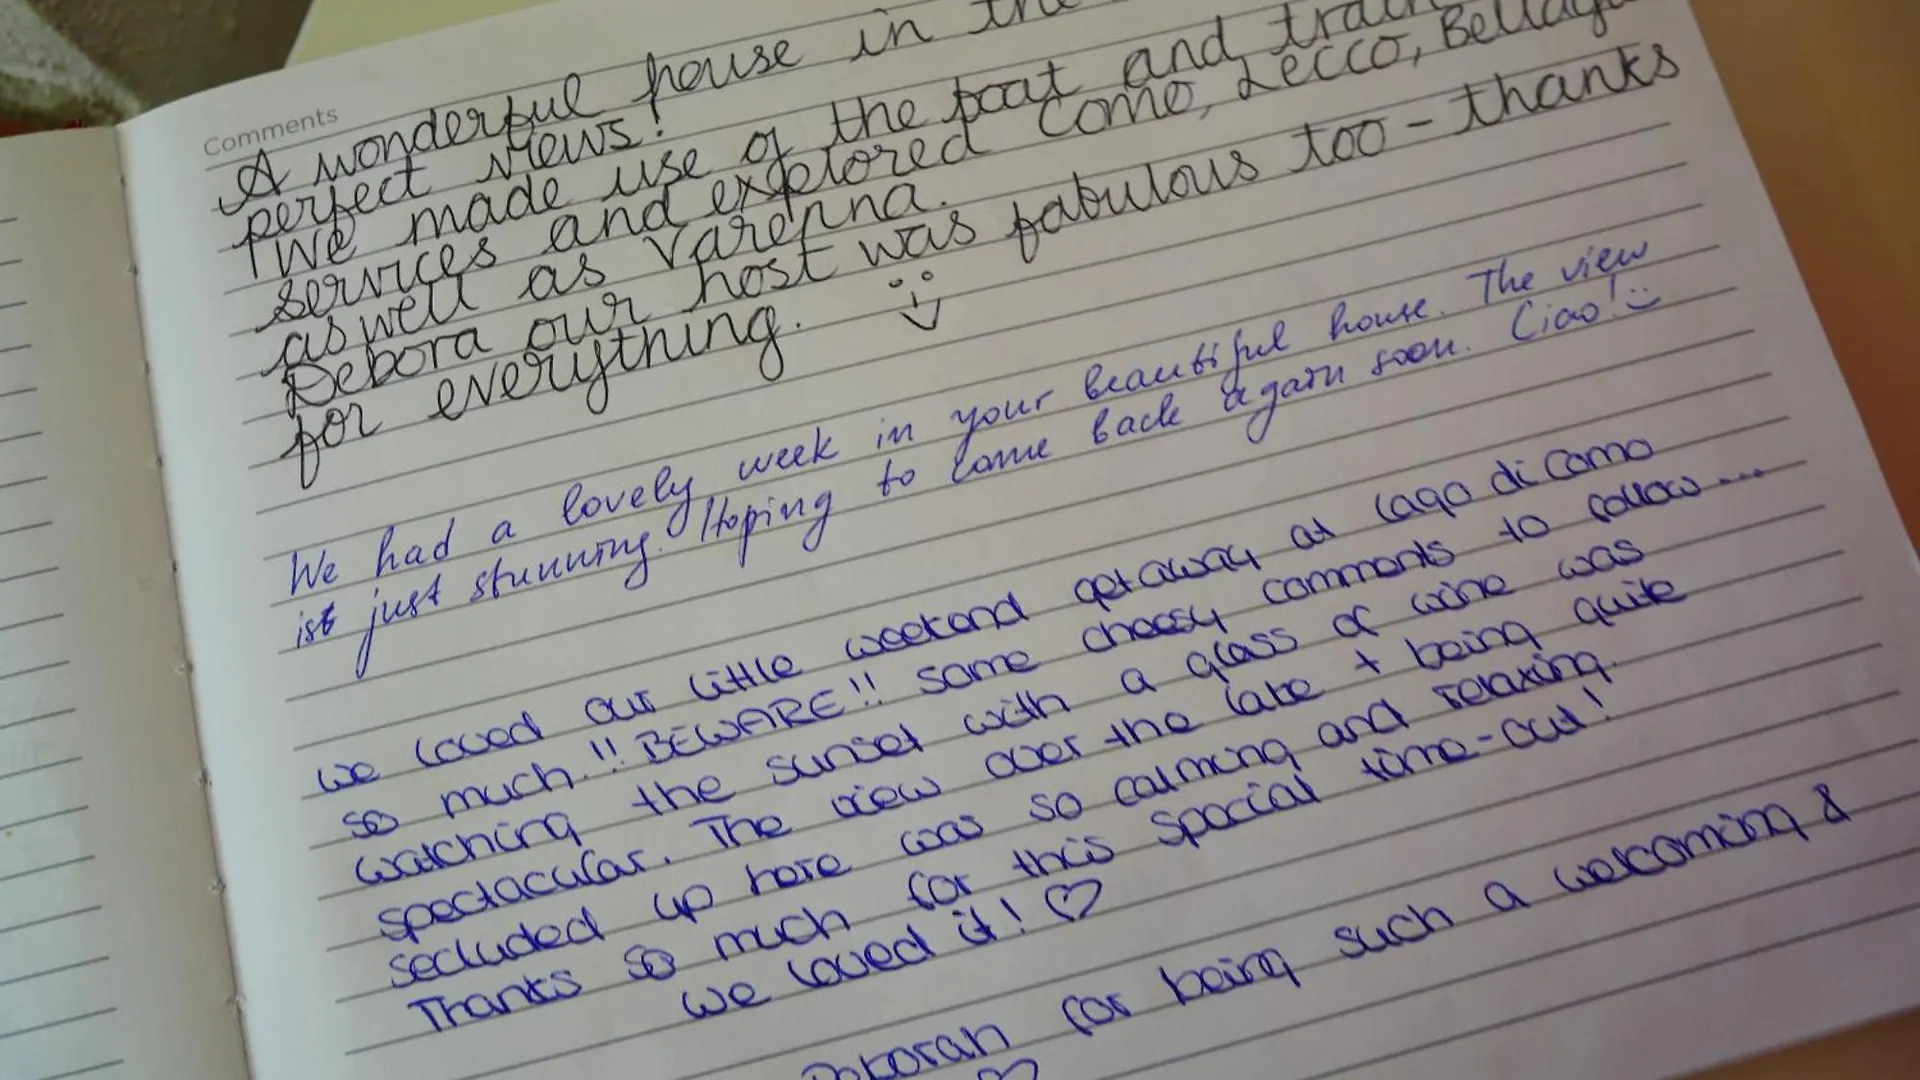 Comments
A wonderful house in the
perfect views!
We made use of the boat and train
services and explored Como, Lecco, Bellagi
as well as Varenna.
Debora our host was fabulous too - thanks
for everything.
We had a lovely week in your beautiful house. The view
ist just stunning. Hoping to come back again soon. Ciao!
We loved our little weekend getaway at Lago di Como
so much!!! BEWARE!! some cheesy comments to follow...
watching the sunset with a glass of wine was
spectacular. The view over the lake + being quite
secluded up here was so calming and relaxing.
Thanks so much for this special time-out!
We loved it! ♡
Deborah for being such a welcoming &